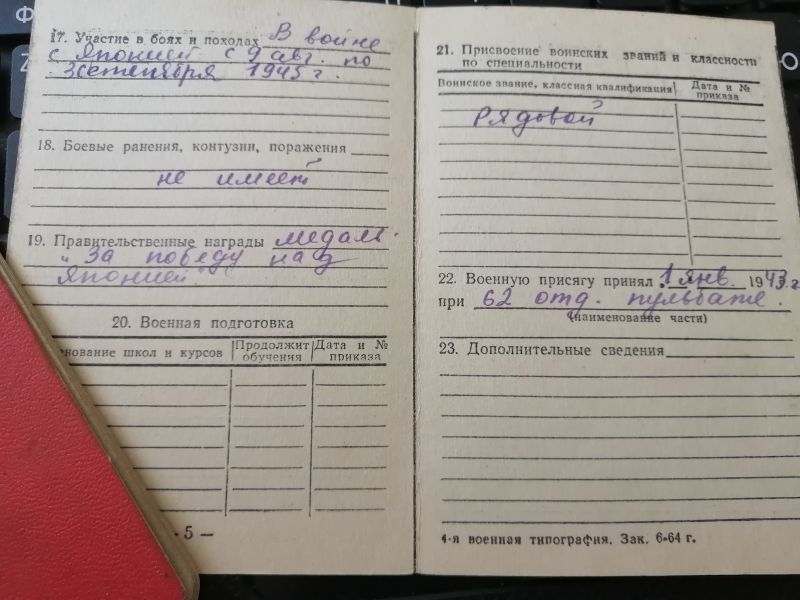 17. Участие в боях и походах В войне
с Японией с 9 авг. по
3 сентября 1945 г.
18. Боевые ранения, контузии, поражения
не имеет
19. Правительственные награды медаль
"За победу над
Японией"
20. Военная подготовка
нование школ и курсов Продолжит обучения Дата и № приказа
- 5 -
21. Присвоение воинских званий и классности
по специальности
Воинское звание, классная квалификация Дата и № приказа
Рядовой
22. Военную присягу принял 1 янв. 1943 г.
при 62 отд. пульбате.
(наименование части)
23. Дополнительные сведения
4-я военная типография. Зак. 6-64 г.